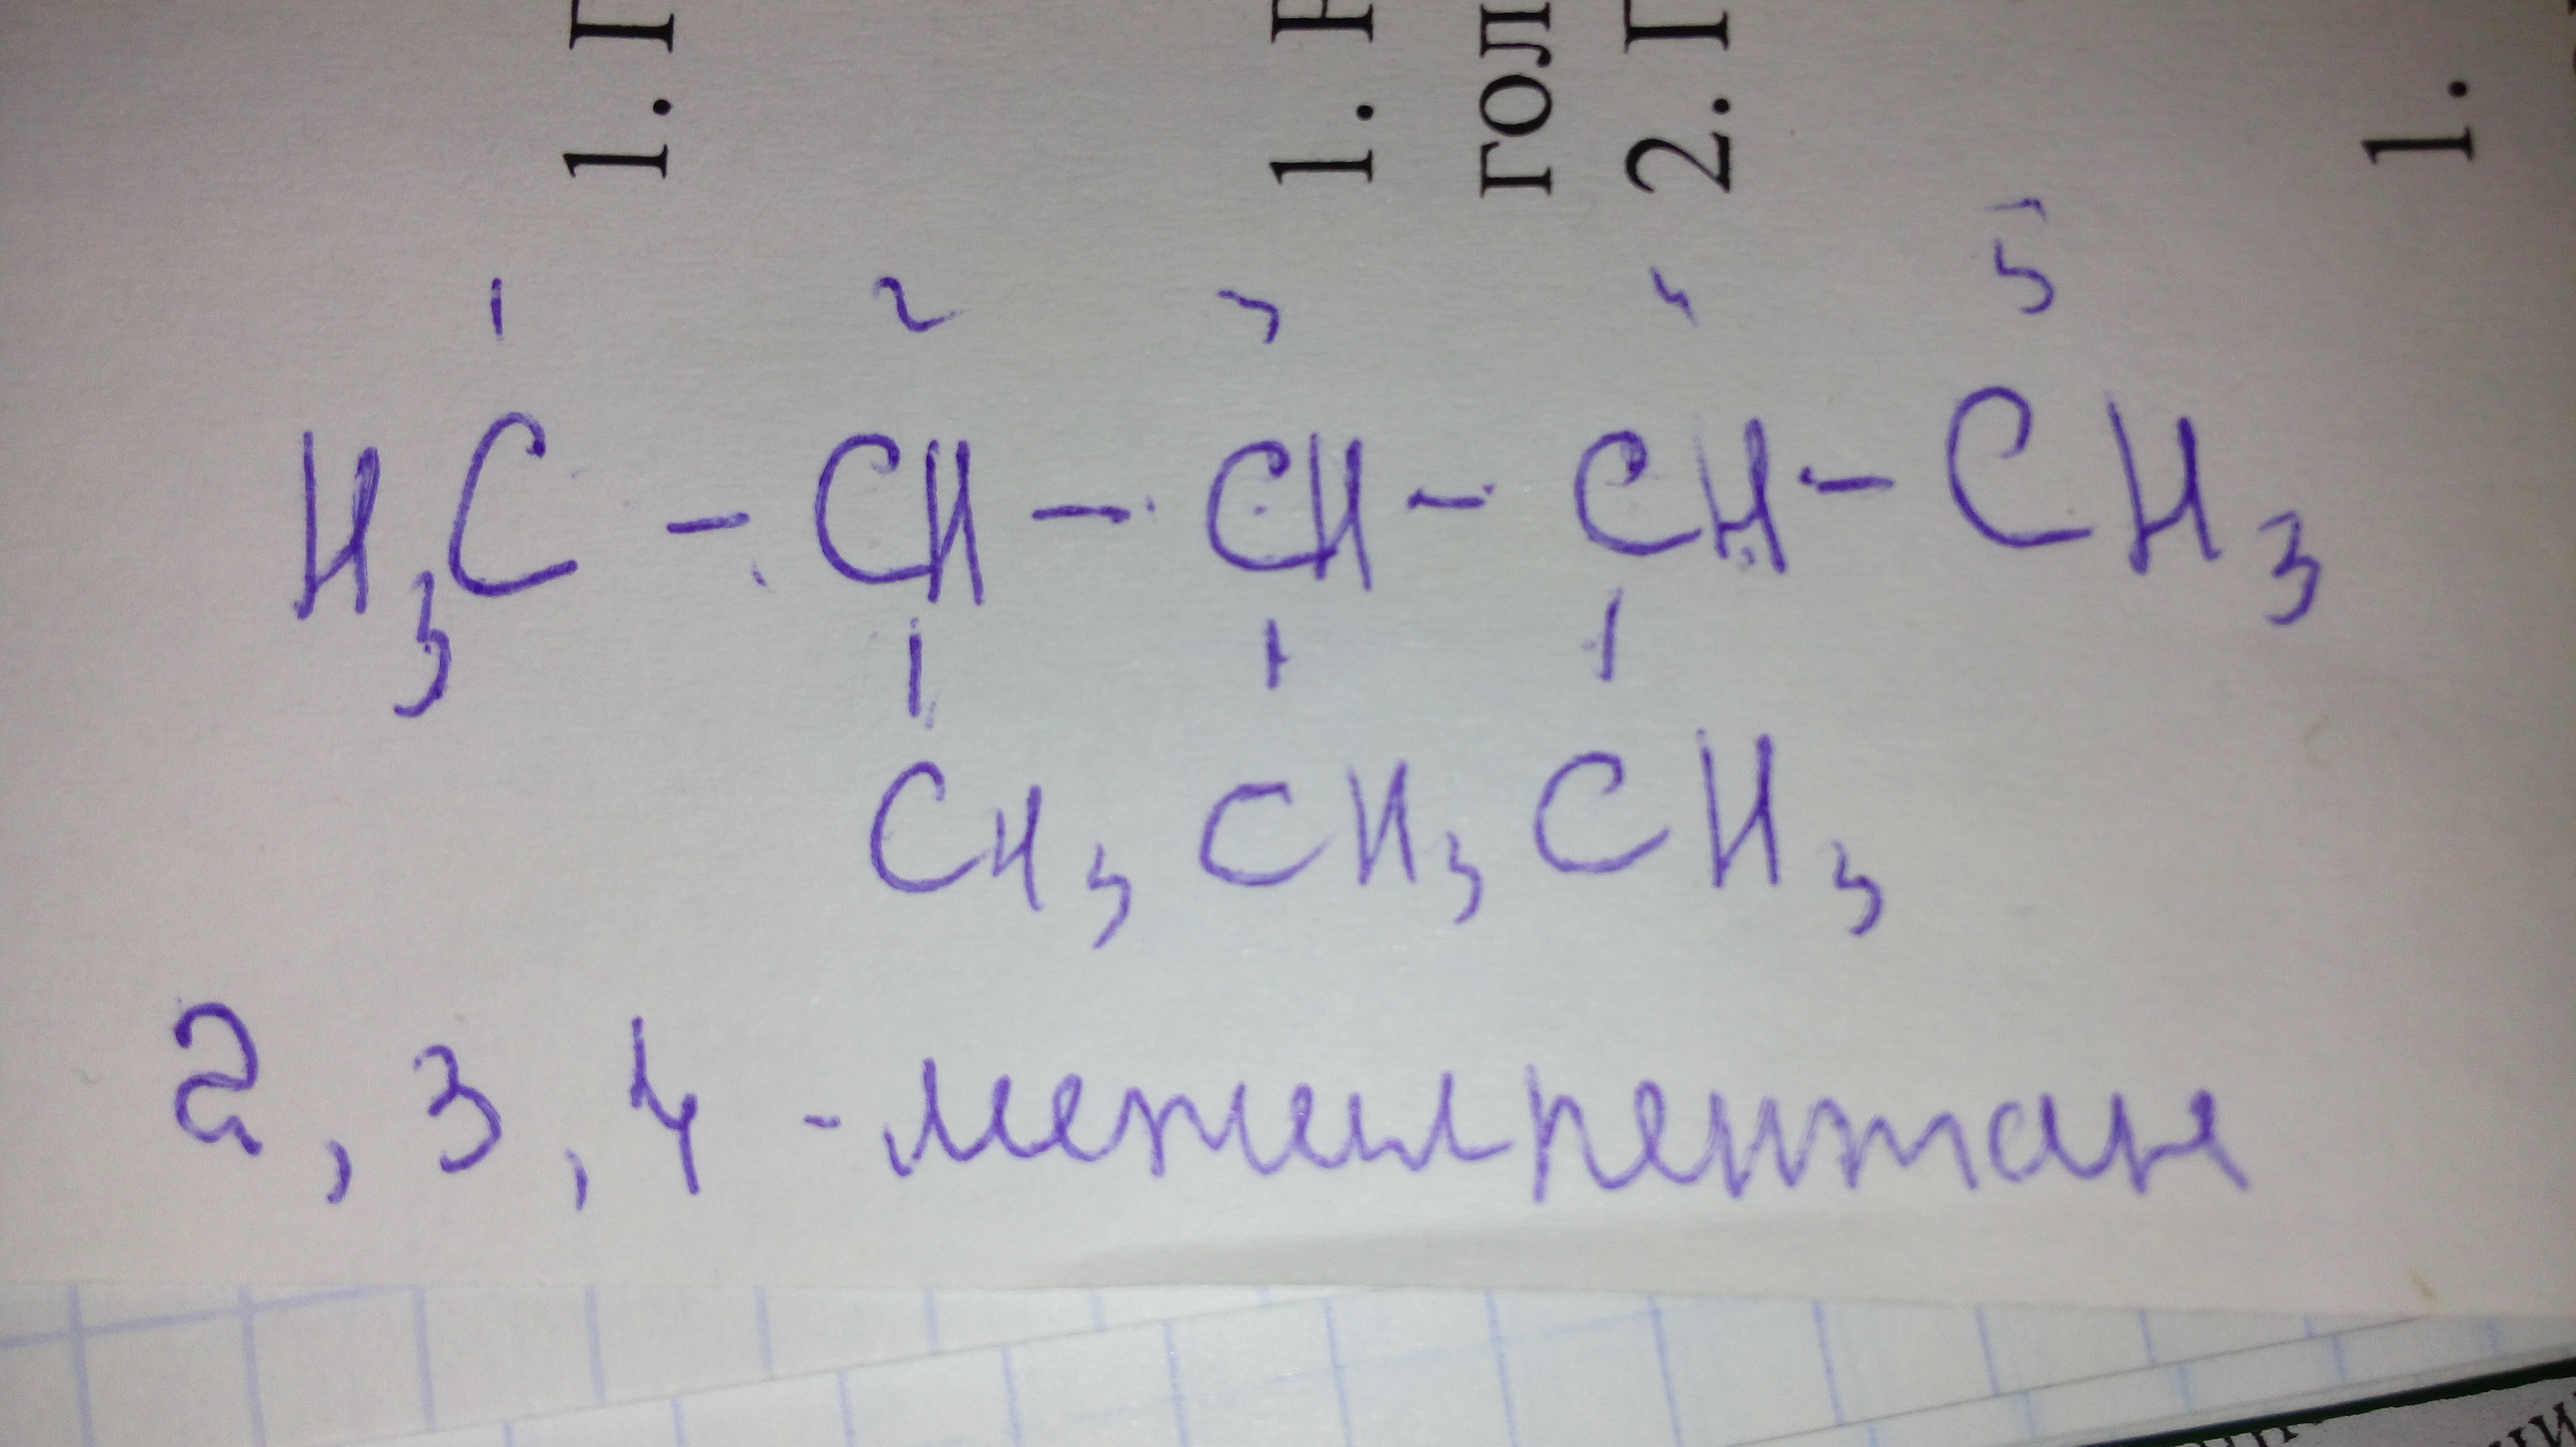 1. Г
1. Н
гол
2. Г
1.
1 2 3 4 5
H3C - CH - CH - CH - CH3
CH3 CH3 CH3
2, 3, 4 - метилпентан